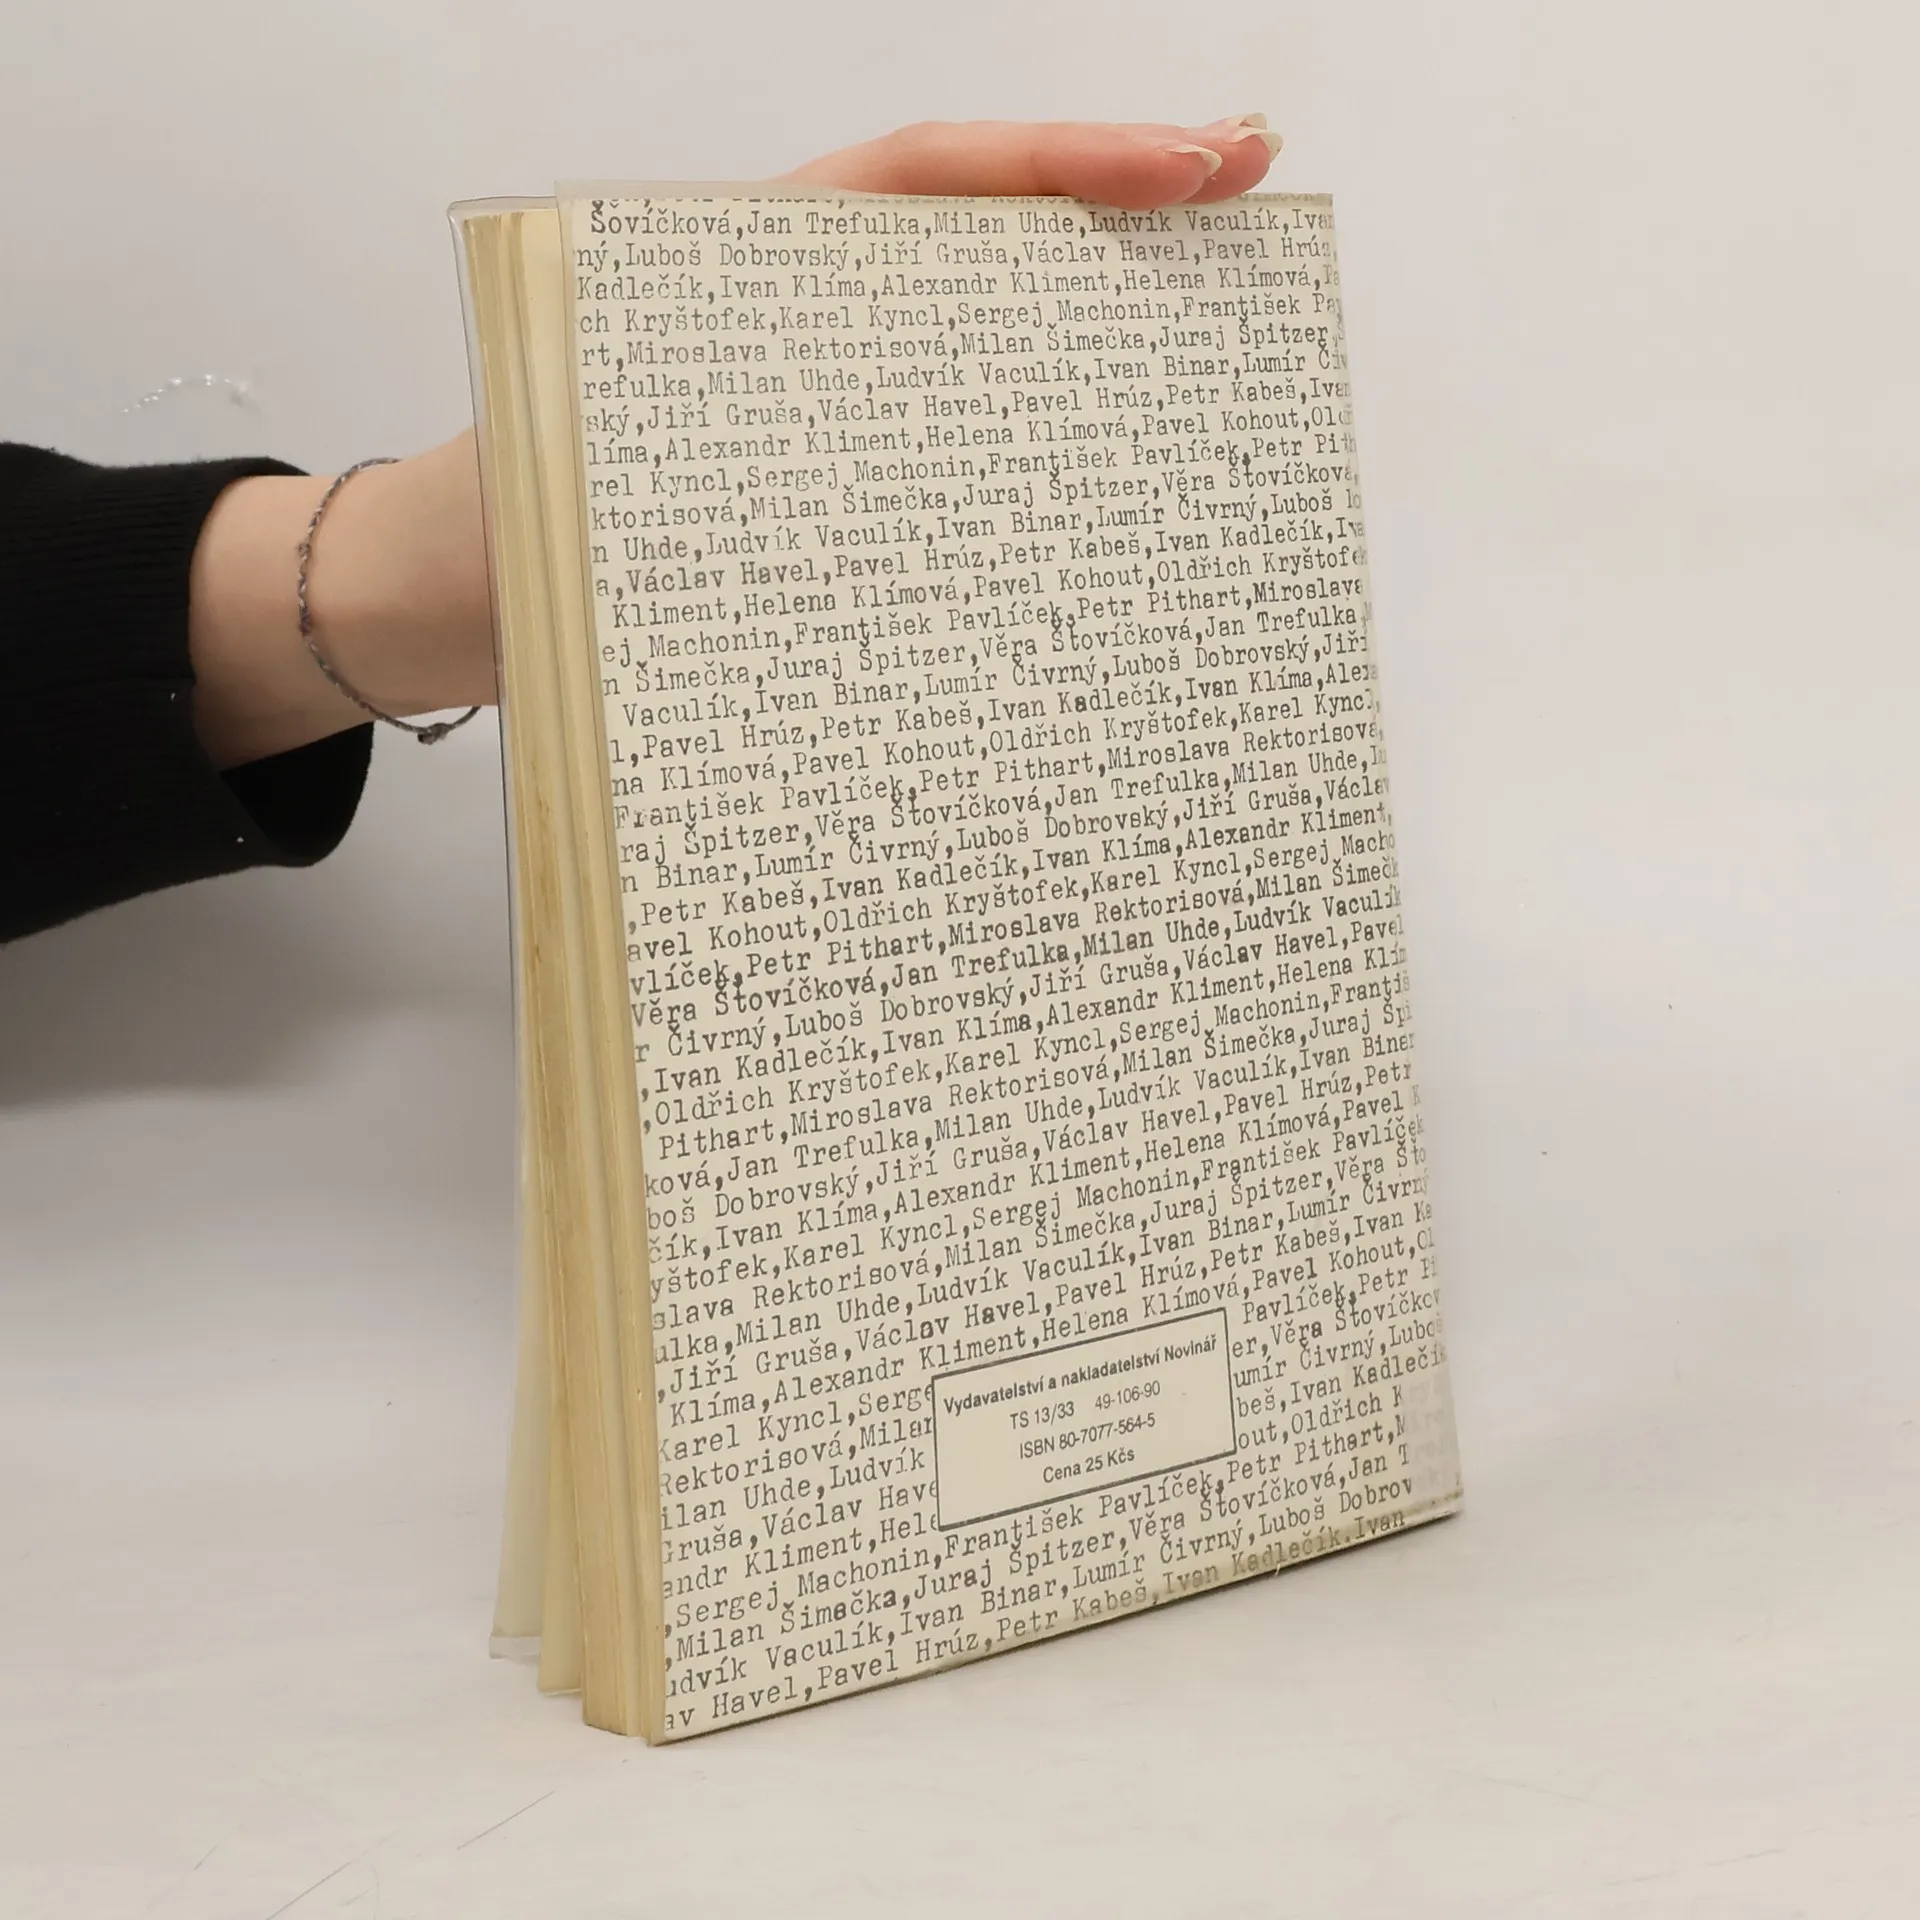 Šovíčková,Jan Trefulka,Milan Uhde,Ludvík Vaculík,Iva
ný,Luboš Dobrovský,Jiří Gruša,Václav Havel,Pavel Hrúz,
Kadlečík,Ivan Klíma,Alexandr Kliment,Helena Klímová,Pa
ch Kryštofek,Karel Kyncl,Sergej Machonin,František Pav
rt,Miroslava Rektorisová,Milan Šimečka,Juraj Špitzer,
refulka,Milan Uhde,Ludvík Vaculík,Ivan Binar,Lumír Čiv
ský,Jiří Gruša,Václav Havel,Pavel Hrúz,Petr Kabeš,Ivan
líma,Alexandr Kliment,Helena Klímová,Pavel Kohout,Old
rel Kyncl,Sergej Machonin,František Pavlíček,Petr Pith
ktorisová,Milan Šimečka,Juraj Špitzer,Věra Šťovíčková,
n Uhde,Ludvík Vaculík,Ivan Binar,Lumír Čivrný,Luboš
a,Václav Havel,Pavel Hrúz,Petr Kabeš,Ivan Kadlečík,Iva
Kliment,Helena Klímová,Pavel Kohout,Oldřich Kryštofek
ej Machonin,František Pavlíček,Petr Pithart,Miroslava
n Šimečka,Juraj Špitzer,Věra Šťovíčková,Jan Trefulka,M
Vaculík,Ivan Binar,Lumír Čivrný,Luboš Dobrovský,Jiří
l,Pavel Hrúz,Petr Kabeš,Ivan Kadlečík,Ivan Klíma,Alexa
na Klímová,Pavel Kohout,Oldřich Kryštofek,Karel Kyncl,
František Pavlíček,Petr Pithart,Miroslava Rektorisová,
raj Špitzer,Věra Šťovíčková,Jan Trefulka,Milan Uhde,Lu
n Binar,Lumír Čivrný,Luboš Dobrovský,Jiří Gruša,Václav
,Petr Kabeš,Ivan Kadlečík,Ivan Klíma,Alexandr Kliment,
avel Kohout,Oldřich Kryštofek,Karel Kyncl,Sergej Macho
vlíček,Petr Pithart,Miroslava Rektorisová,Milan Šimečk
Věra Šťovíčková,Jan Trefulka,Milan Uhde,Ludvík Vaculík
r Čivrný,Luboš Dobrovský,Jiří Gruša,Václav Havel,Pavel
,Ivan Kadlečík,Ivan Klíma,Alexandr Kliment,Helena Klím
,Oldřich Kryštofek,Karel Kyncl,Sergej Machonin,Františ
Pithart,Miroslava Rektorisová,Milan Šimečka,Juraj Špi
ková,Jan Trefulka,Milan Uhde,Ludvík Vaculík,Ivan Binar
boš Dobrovský,Jiří Gruša,Václav Havel,Pavel Hrúz,Petr
čík,Ivan Klíma,Alexandr Kliment,Helena Klímová,Pavel K
yštofek,Karel Kyncl,Sergej Machonin,František Pavlíček
slava Rektorisová,Milan Šimečka,Juraj Špitzer,Věra Što
ulka,Milan Uhde,Ludvík Vaculík,Ivan Binar,Lumír Čivrný
,Jiří Gruša,Václav Havel,Pavel Hrúz,Petr Kabeš,Ivan Ka
Klíma,Alexandr Kliment,Helena Klímová,Pavel Kohout,Ol
Karel Kyncl,Serge Pavlíček,Petr Pi
Rektorisová,Milan er,Věra Šťovíčkov
ilan Uhde,Ludvík umír Čivrný,Luboš
Gruša,Václav Have beš,Ivan Kadlečík
andr Kliment,Hele out,Oldřich K
,Sergej Machonin,František Pavlíček,Petr Pithart,M
,Milan Šimečka,Juraj Špitzer,Věra Šťovíčková,Jan T
udvík Vaculík,Ivan Binar,Lumír Čivrný,Luboš Dobrov
av Havel,Pavel Hrúz,Petr Kabeš,Ivan Kadlečík,Ivan
Vydavatelství a nakladatelství Novinář
TS 13/33 49-106-90
ISBN 80-7077-564-5
Cena 25 Kčs